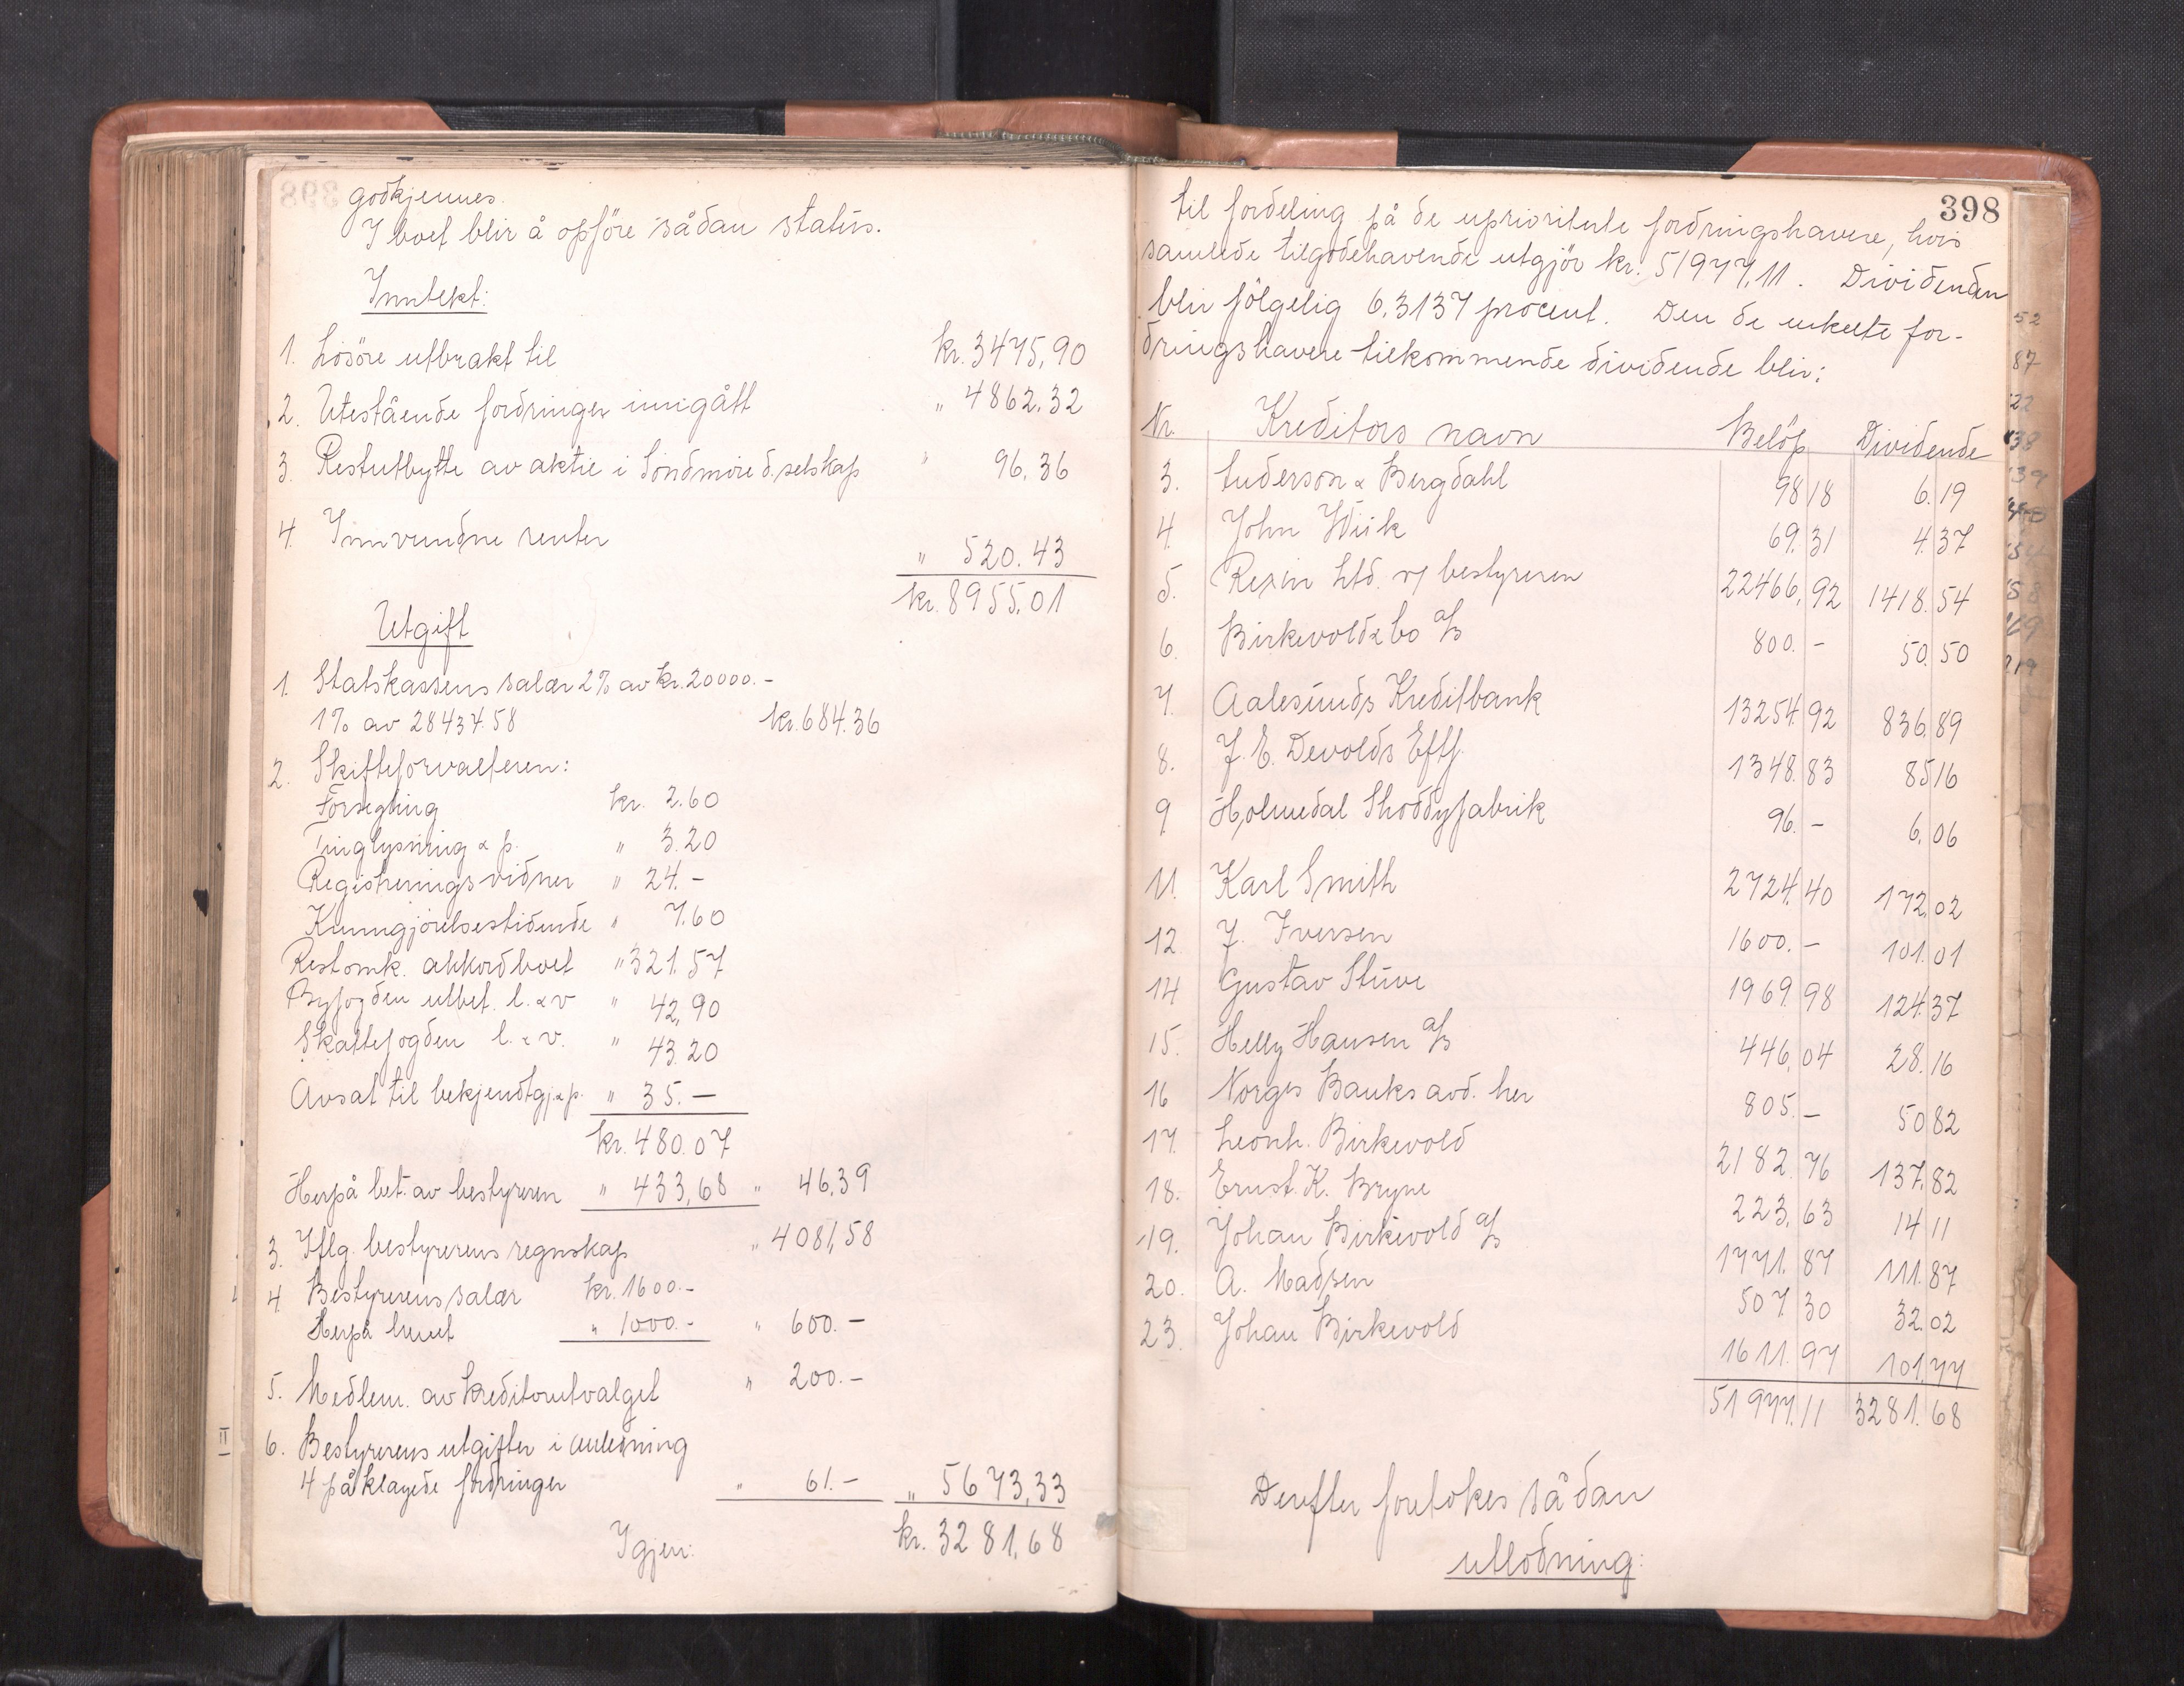 godkjennes.
I boet blir å opføre sådan status.
Inntekt:
1. Løsøre utbrakt til kr. 3475,90
2. Utestående fordringer inngått " 4862.32
3. Restutbytte av aktie i Søndmøre d. selskap " 96.36
4. Innvundne renter " 520.43
kr. 8955.01
Utgift
1. Statskassens salær 2% av kr. 20000.-
1% av 28434.58 kr. 684.36
2. Skifteforvalteren:
Forsegling kr. 2.60
Tinglysning & p. " 3.20
Registreringsvidner " 24.-
Kunngjørelsestidende " 7.60
Restomk. akkordboet " 321.57
Byfogden utbet. l. & v " 42,90
Skattefogden l. & v. " 43.20
Avsat til bekjendtgj. & p. " 35.-
kr. 480.07
Herpå bet. av bestyreren " 433,68 " 46,39
3. Iflg. bestyrerens regnskap " 4081,58
4. Bestyrerens salær kr. 1600.-
Herpå hevet " 1000.- " 600.-
5. Medlem. av kreditorutvalget " 200.-
6. Bestyrerens utgifter i anledning
4 påklagede fordringer " 61.- " 5673,33
Igjen: kr. 3281,68
398
til fordeling på de uprioriterte fordringshavere, hvis
samlede tilgodehavende utgjør kr. 51977,11. Dividenden
blir følgelig 6.3137 procent. Den de enkelte for-
dringshavere tilkommende dividende blir:
Nr. Kreditors navn Beløp Dividende
3. Anderson & Bergdahl 98 18 6.19
4. John Wiik 69.31 4.37
5. Rexin Ltd. v/ bestyreren 22466,92 1418.54
6. Birkevold & Co a/s 800.- 50.50
7. Aalesunds Kreditbank 13254.92 836.89
8. J. E. Devolds Eftf. 1348.83 85 16
9. Holmedal Shoddyfabrik 96.- 6.06
11. Karl Smith 2724.40 172.02
12 J. Iversen 1600.- 101.01
14 Gustav Stüwe 1969.98 124.37
15. Helly Hansen a/s 446,04 28.16
16 Norges Banks avd. her 805.- 50 82
17. Leonh. Birkevold 2182.76 137.82
18. Ernst. K. Bryne 223.63 14 11
19. Johan Birkevold a/s 1771.87 111.87
20. A. Madsen 507 30 32.02
23. Johan Birkevold 1611.97 101.77
51977.11 3281.68
Derefter foretokes sådan
utlodning: